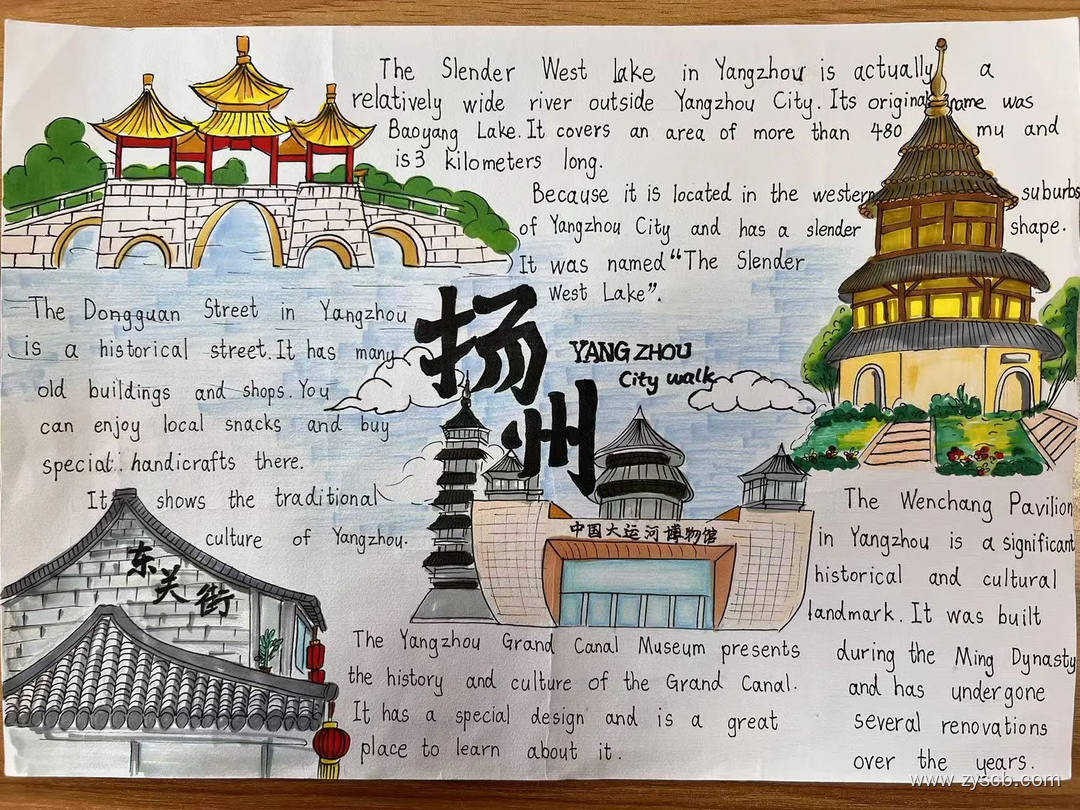 The Slender West Lake in Yangzhou is actually a
relatively wide river outside Yangzhou City. Its original name was
Baoyang Lake. It covers an area of more than 480 mu and
is 3 kilometers long.
Because it is located in the western suburbs
of Yangzhou City and has a slender shape.
It was named "The Slender
West Lake".
The Dongguan Street in Yangzhou
is a historical street. It has many
old buildings and shops. You
can enjoy local snacks and buy
special handicrafts there.
It shows the traditional
culture of Yangzhou.
扬州
YANG ZHOU
City walk
东关街
中国大运河博物馆
The Yangzhou Grand Canal Museum presents
the history and culture of the Grand Canal.
It has a special design and is a great
place to learn about it.
The Wenchang Pavilion
in Yangzhou is a significant
historical and cultural
landmark. It was built
during the Ming Dynasty
and has undergone
several renovations
over the years.
www.zyscb.com